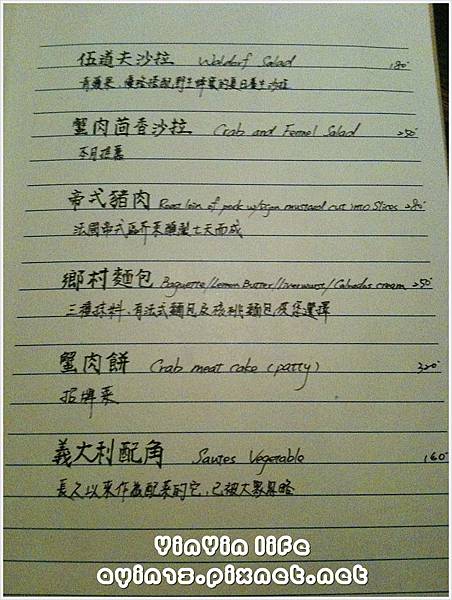 伍道夫沙拉 Waldorf Salad 180
青蘋果、優格搭配野生蜂蜜的夏日養生沙拉
蟹肉茴香沙拉 Crab and Fennel Salad 250
本月推薦
帝式豬肉 Roast loin of pork w/Dijon mustard cut into Slices 280
法國帝式區芥茉醃製七天而成
鄉村麵包 Baguette/Lemon Butter/liverwurst/Calvados cream 250
三種抹料,有法式麵包及核桃麵包及您選擇
蟹肉餅 Crab meat cake (patty) 320
招牌菜
義大利配角 Sautes Vegetable 160
長久以來作為配菜的它,已被大眾忽略
YinYin life
ayin13.pixnet.net